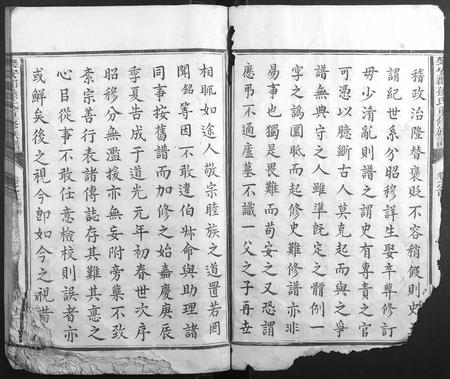 稽政治隆替褒貶不容稍假則史
謂紀世系分昭穆詳生娶卒葬修訂
毋少淆亂則譜之謂史有專責之官
可憑以臆斷古人莫克起而與之爭
譜無與守之人雖準既定之體例一
字之譌亂而起修史難修譜亦非
易事也獨是畏難而苟安之又恐謂
應弔不過廬墓不識一父之子再世
相眡如途人敬宗睦族之道置若罔
聞銘等因不敢違伯叔命與助理諸
同事按舊譜而加修之始嘉慶庚辰
季夏吉成于道光元年初春世次序
昭穆分無濫援亦無妄附旁蒐不致
紊宗善行表諸傳誌存其難其慎之
心日從事不敢任意檢校則誤者亦
或鮮矣後之視今卽如今之視昔